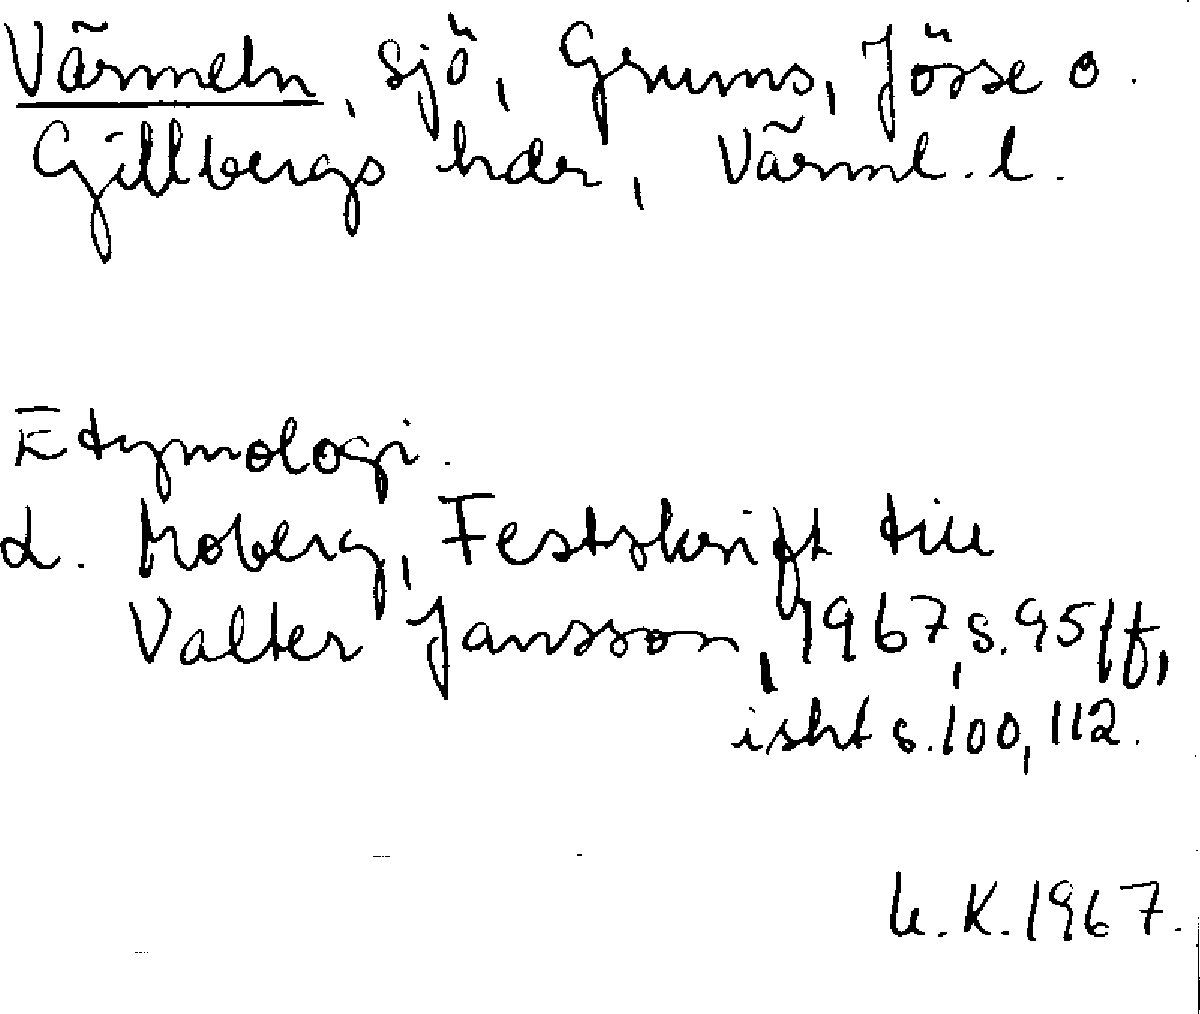 Värmeln, sjö, Grums, Jösse o.
Gillbergs hder, Värml. l.
Etymologi.
L. Moberg, Festskrift till
Valter Jansson, 1967, s. 95 ff,
isht s. 100, 112.
K. 1967.